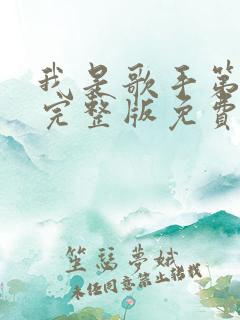 我是歌手第
完整版免費
笙瑟夢斌
未经同意禁止搭载